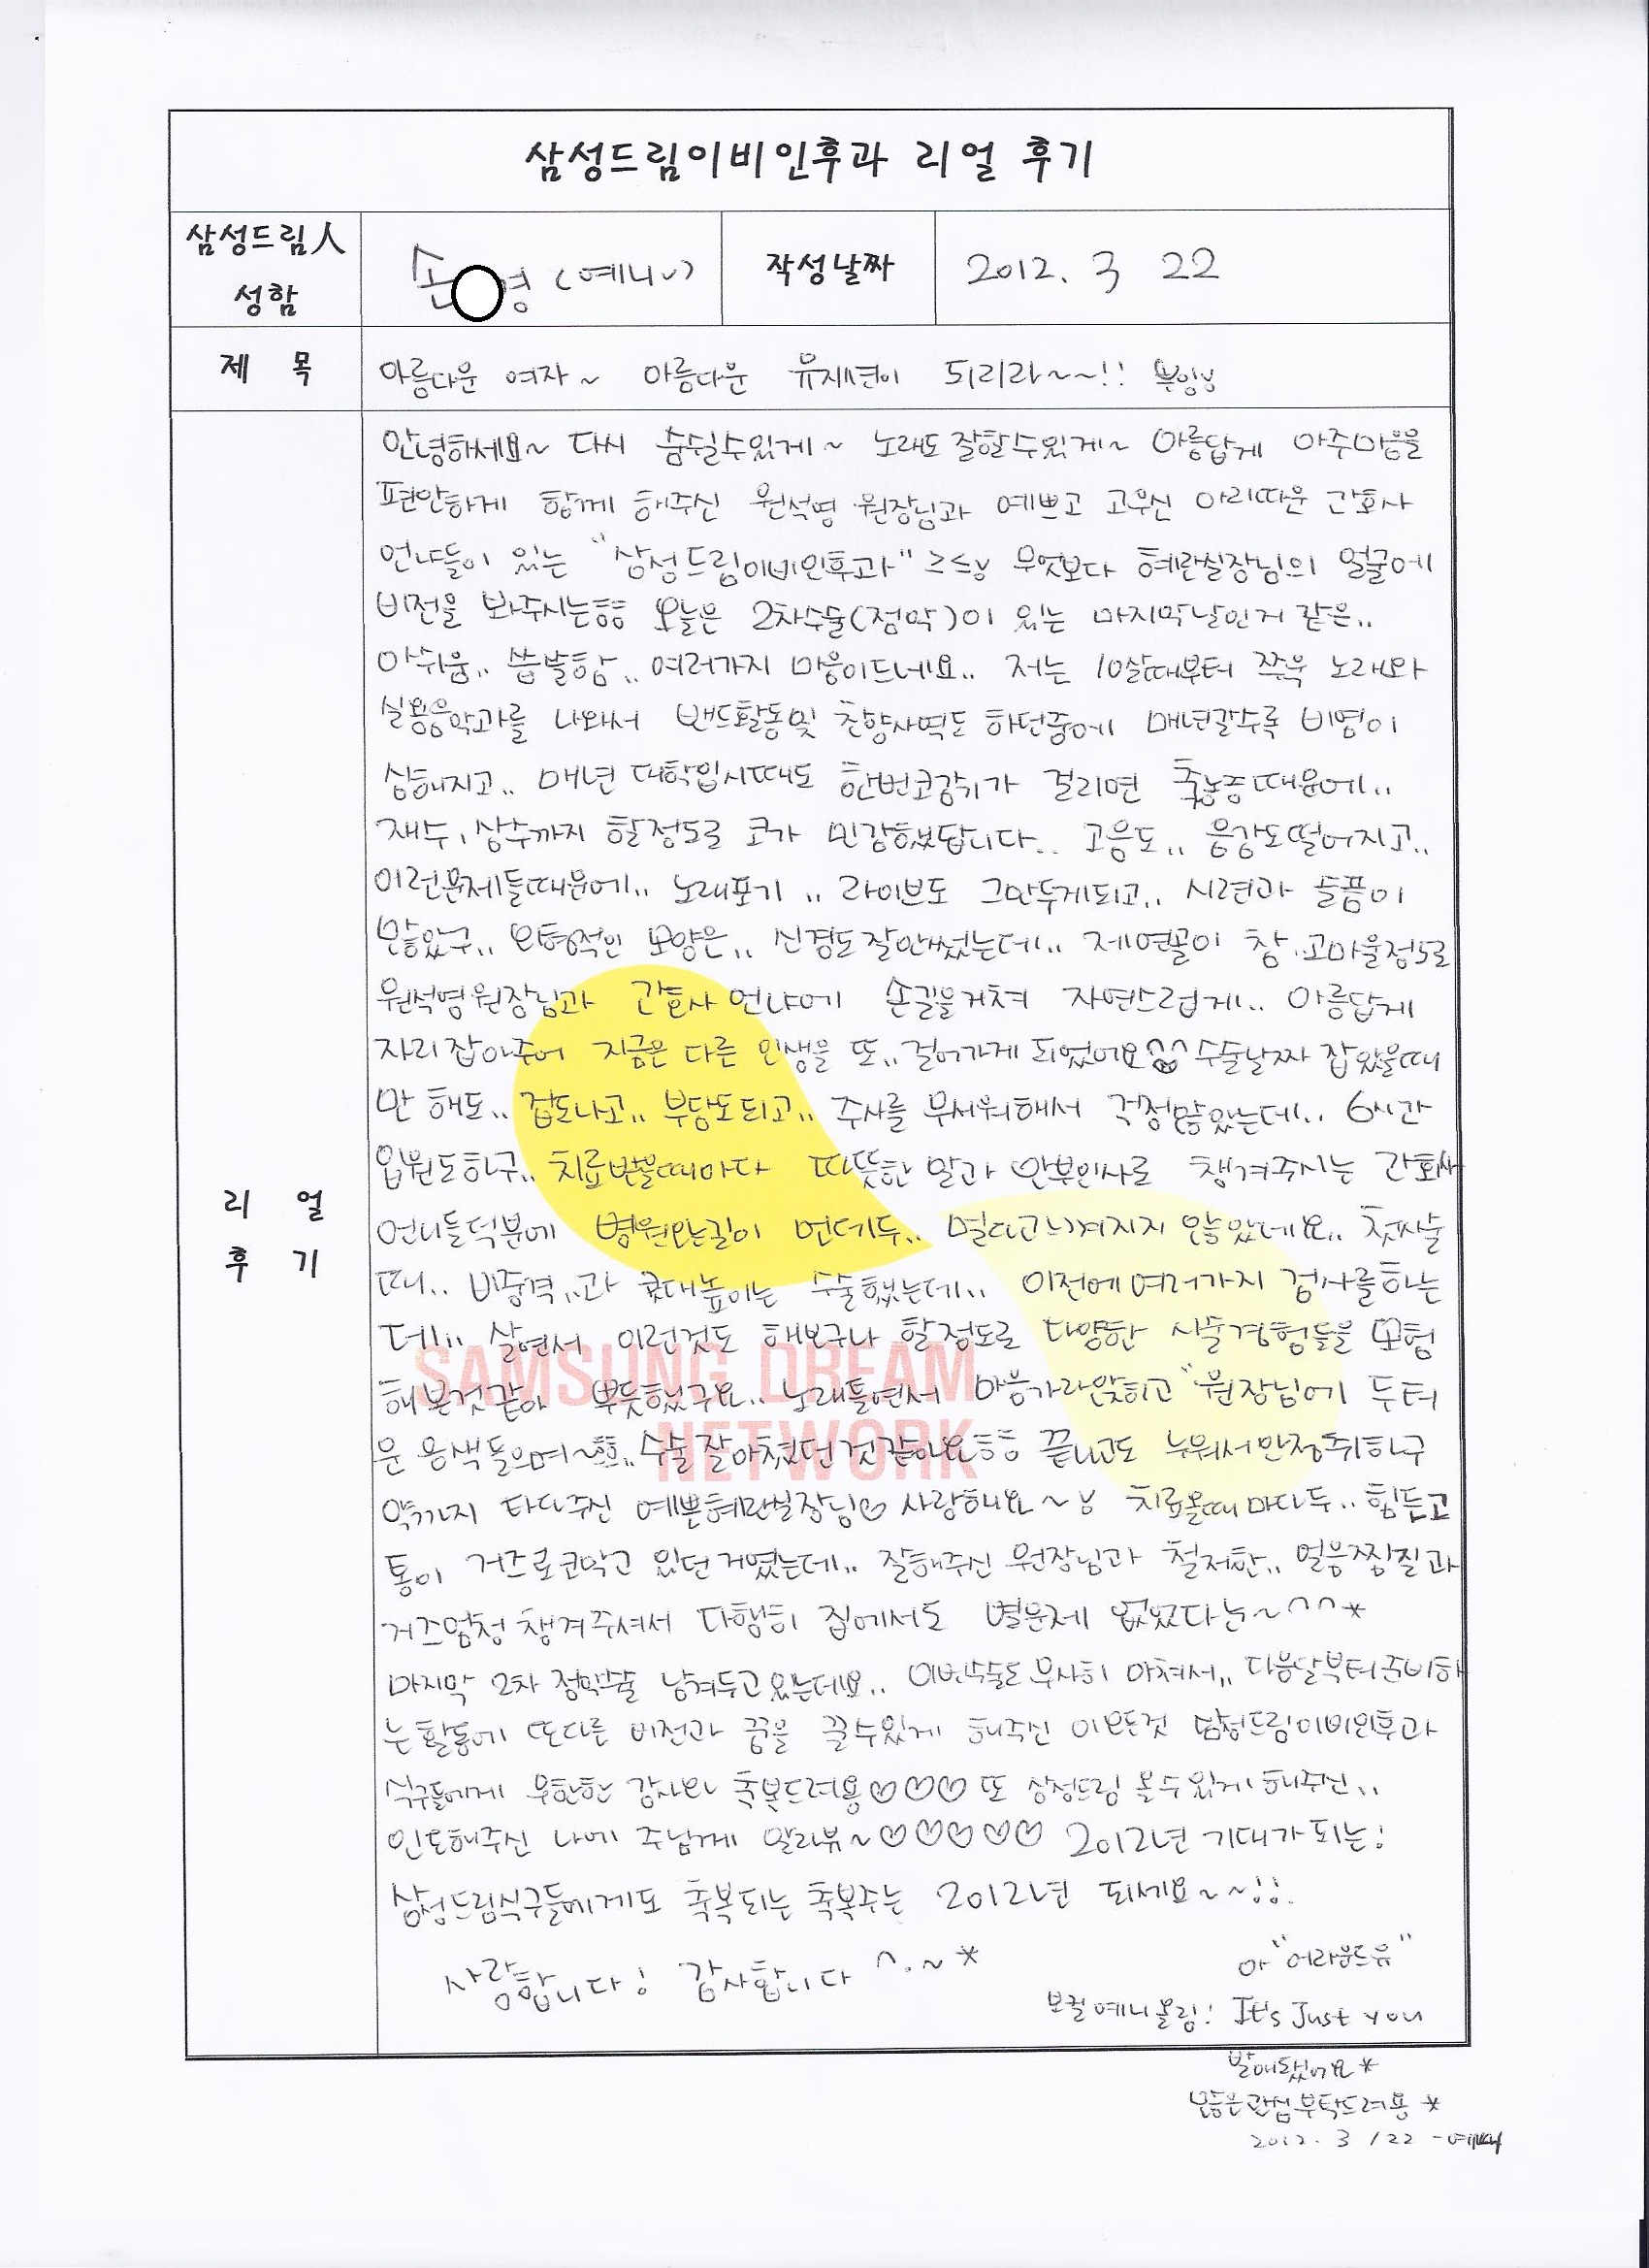 삼성드림이비인후과 리얼 후기
삼성드림人
성함
손 영 (예니)
작성날짜
2012. 3 22
제 목
아름다운 여자~ 아름다운 되리라~~!!
리 얼
후 기
안녕하세요~ 다시 숨쉴수있게~ 노래도 잘할수있게~ 아름답게 아주마음을
편안하게 함께 해주신 원석명 원장님과 예쁘고 고우신 아리따운 간호사
언냐들이 있는 "삼성드림이비인후과" 무엇보다 혜란실장님의 얼굴에
비전을 봐주시는ㅎㅎ 오늘은 2차수술(점막)이 있는 마지막날인거 같은..
아쉬움.. 씁쓸함.. 여러가지 마음이드네요.. 저는 10살때부터 쭈욱 노래와
실용음악과를 나와서 밴드활동및 찬양사역도 하던중에 매년갈수록 비염이
심해지고.. 매년 대학입시때도 한번코감기가 걸리면 축농증때문에..
재수, 삼수까지 할정도로 코가 민감했답니다.. 고음도.. 음감도떨어지고..
이런문제들때문에.. 노래포기.. 라이브도 그만두게되고.. 시련과 슬픔이
많았구.. 모양은.. 신경도잘안썼는데.. 제연골이 참.고마울정도로
원석명원장님과 간호사 언냐에 손길을거쳐 자연스럽게.. 아름답게
자리잡아주어 지금은 다른 인생을 또.. 걸어가게 되었어요^^ 수술날짜 잡았을때
만 해도.. 겁도나고.. 부담도되고.. 주사를 무서워해서 걱정많았는데.. 6시간
입원도하구.. 치료받을때마다 따뜻한 말과 안부인사로 챙겨주시는 간호사
언니들덕분에 병원오는길이 먼데두.. 멀다고느껴지지 않았네요.. 첫수술
때.. 비중격..과 콧대높이는 수술했는데.. 이전에여러가지 검사를하는
데.. 살면서 이런것도 해보구나 할정도로 다양한 시술경험들을 모험
해본것같아 뿌듯했구요.. 노래틀면서 마음가라앉히고 원장님에 두터
운 음색들으며~ㅎㅎ.. 수술잘마쳤던것같아요ㅎㅎ 끝나고도 누워서안정취하구
약까지 타다주신 예쁜혜란실장님♡ 사랑해요~ 치료올때마다두.. 힘든고
통이 거즈로코막고 있던거였는데.. 잘해주신 원장님과 철저한.. 얼음찜질과
거즈엄청챙겨주셔서 다행히 집에서도 별문제 없었다는~^^*
마지막 2차 점막수술 남겨두고있는데요.. 이번수술도무사히 마쳐서.. 다음달부터준비하
는활동에 또다른 비전과 꿈을 꿀수있게 해주신 이모든것 삼성드림이비인후과
식구들에게 무한한 감사와 축복드려용♡♡♡♡ 또 삼성드림 올수있게해주신..
인도해주신 나에 주님께 알라뷰~♡♡♡♡♡ 2012년 기대가되는!
삼성드림식구들에게도 축복되는 축복주는 2012년 되세요~~!!
사랑합니다! 감사합니다 ^.~*
"어라운드유"
보컬예니올림! It's Just you
발매됐어요*
많은관심부탁드려용*
2012. 3 / 22
SAMSUNG DREAM
NETWORK